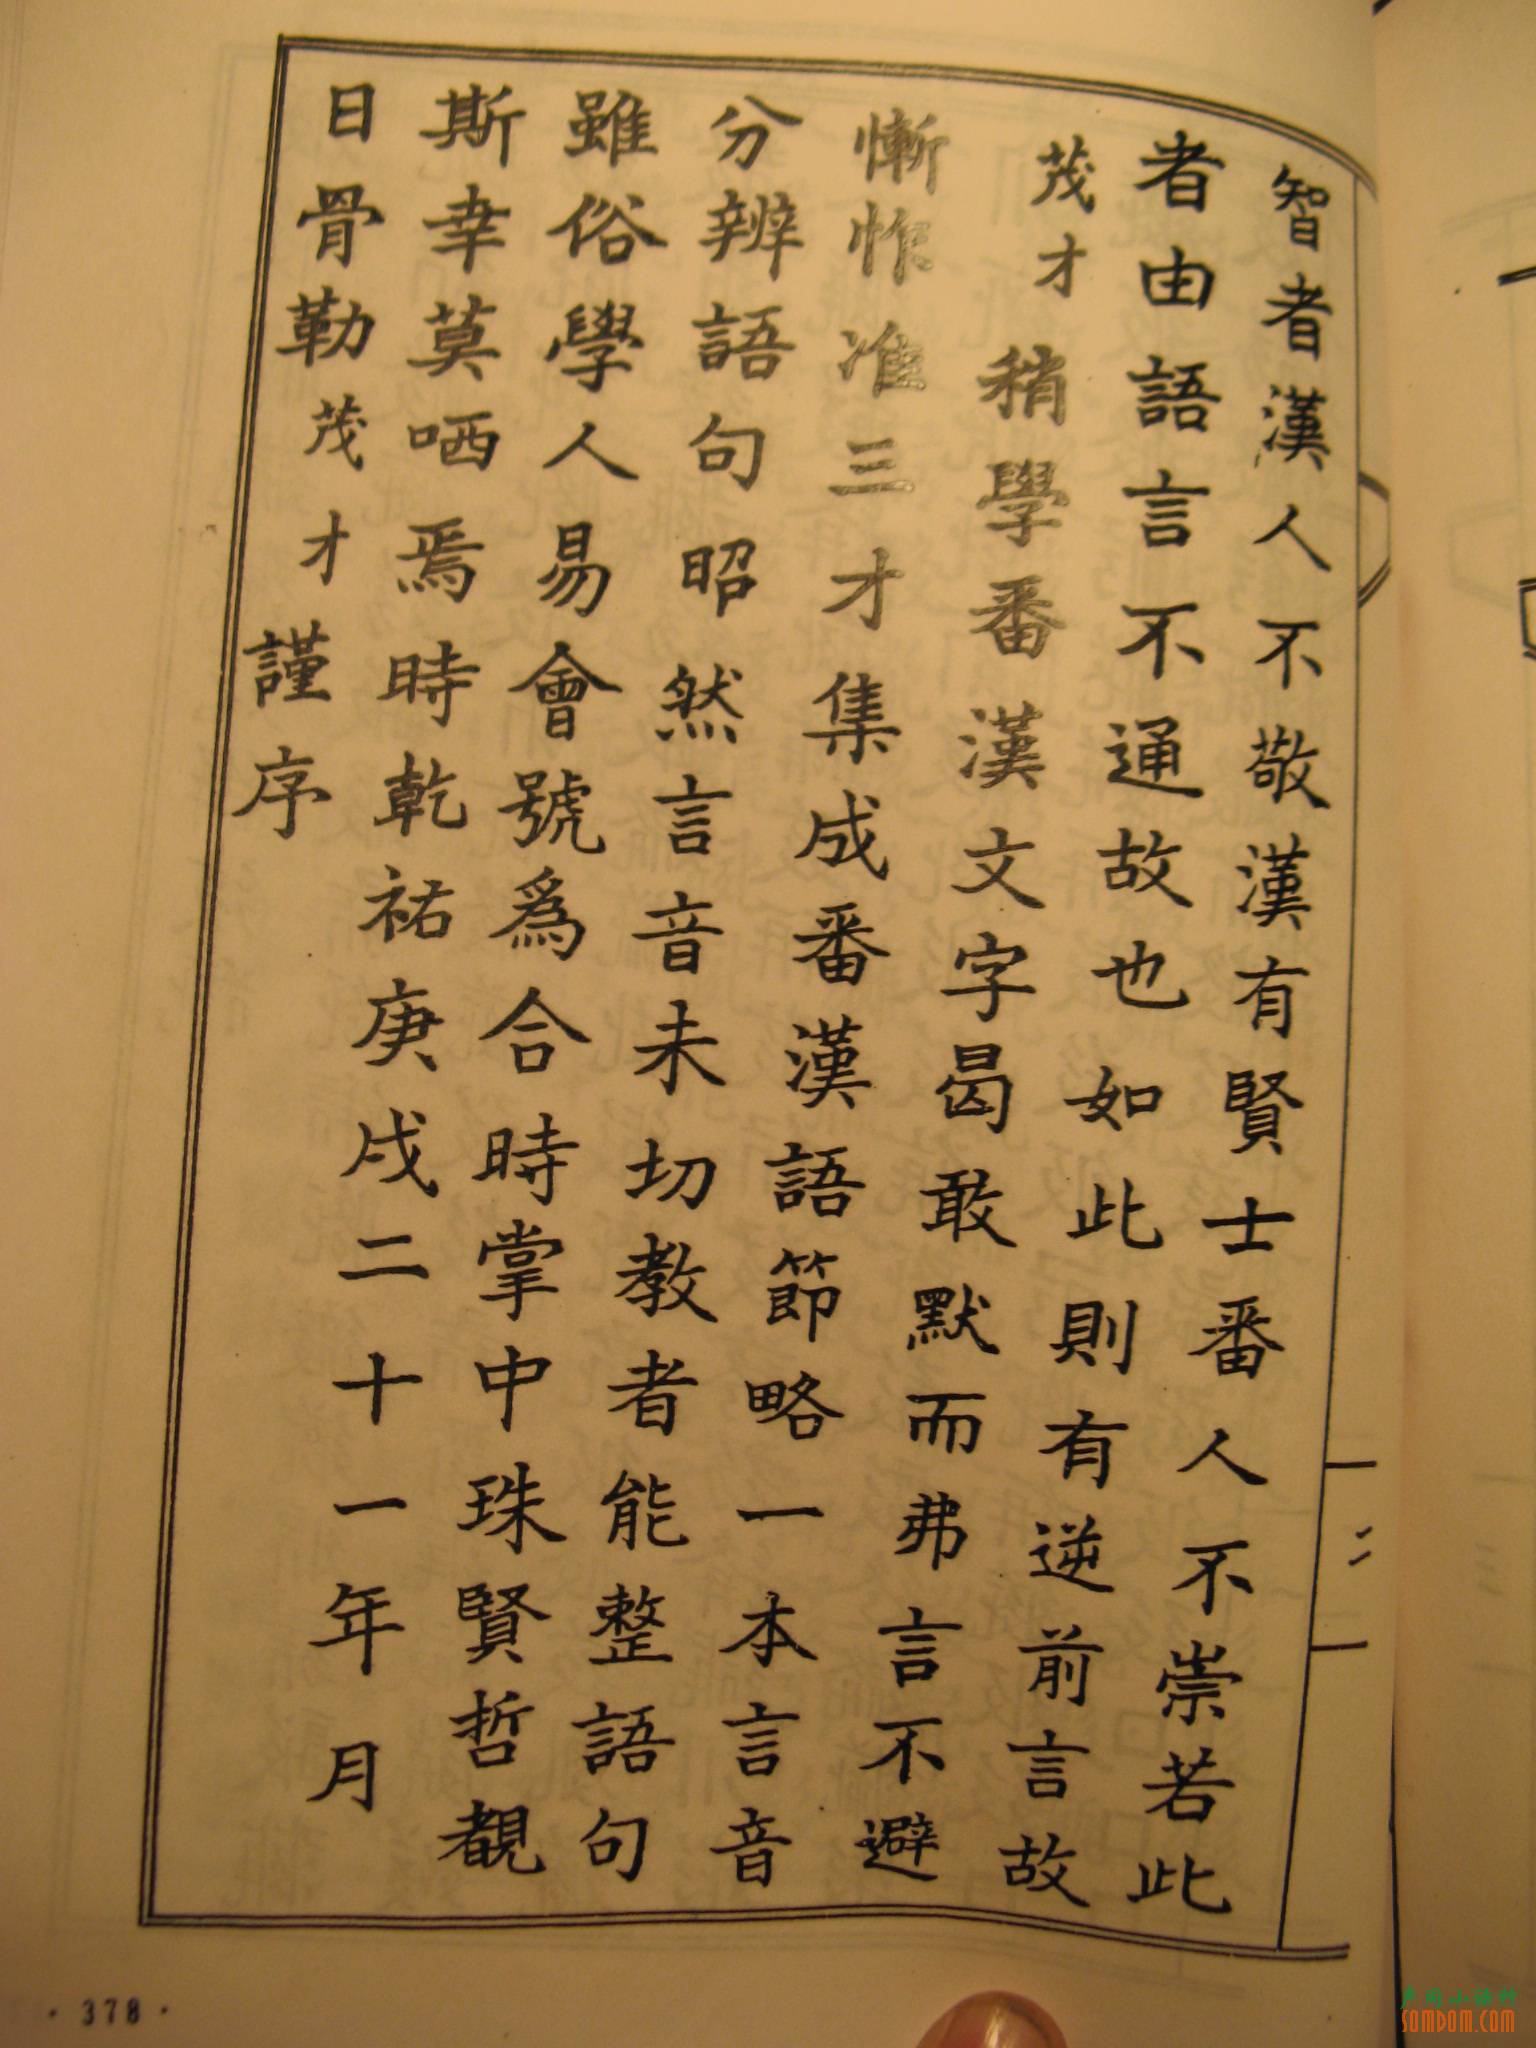 智者漢人不敬漢有賢士番人不崇若此
者由語言不通故也如此則有逆前言故
茂才稍學番漢文字曷敢默而弗言不避
慚怍准三才集成番漢語節略一本言音
分辨語句昭然言音未切教者能整語句
雖俗學人易會號爲合時掌中珠賢哲覩
斯幸莫哂焉時乾祐庚戌二十一年月
日骨勒茂才謹序
二
· 378 ·
somdom.com